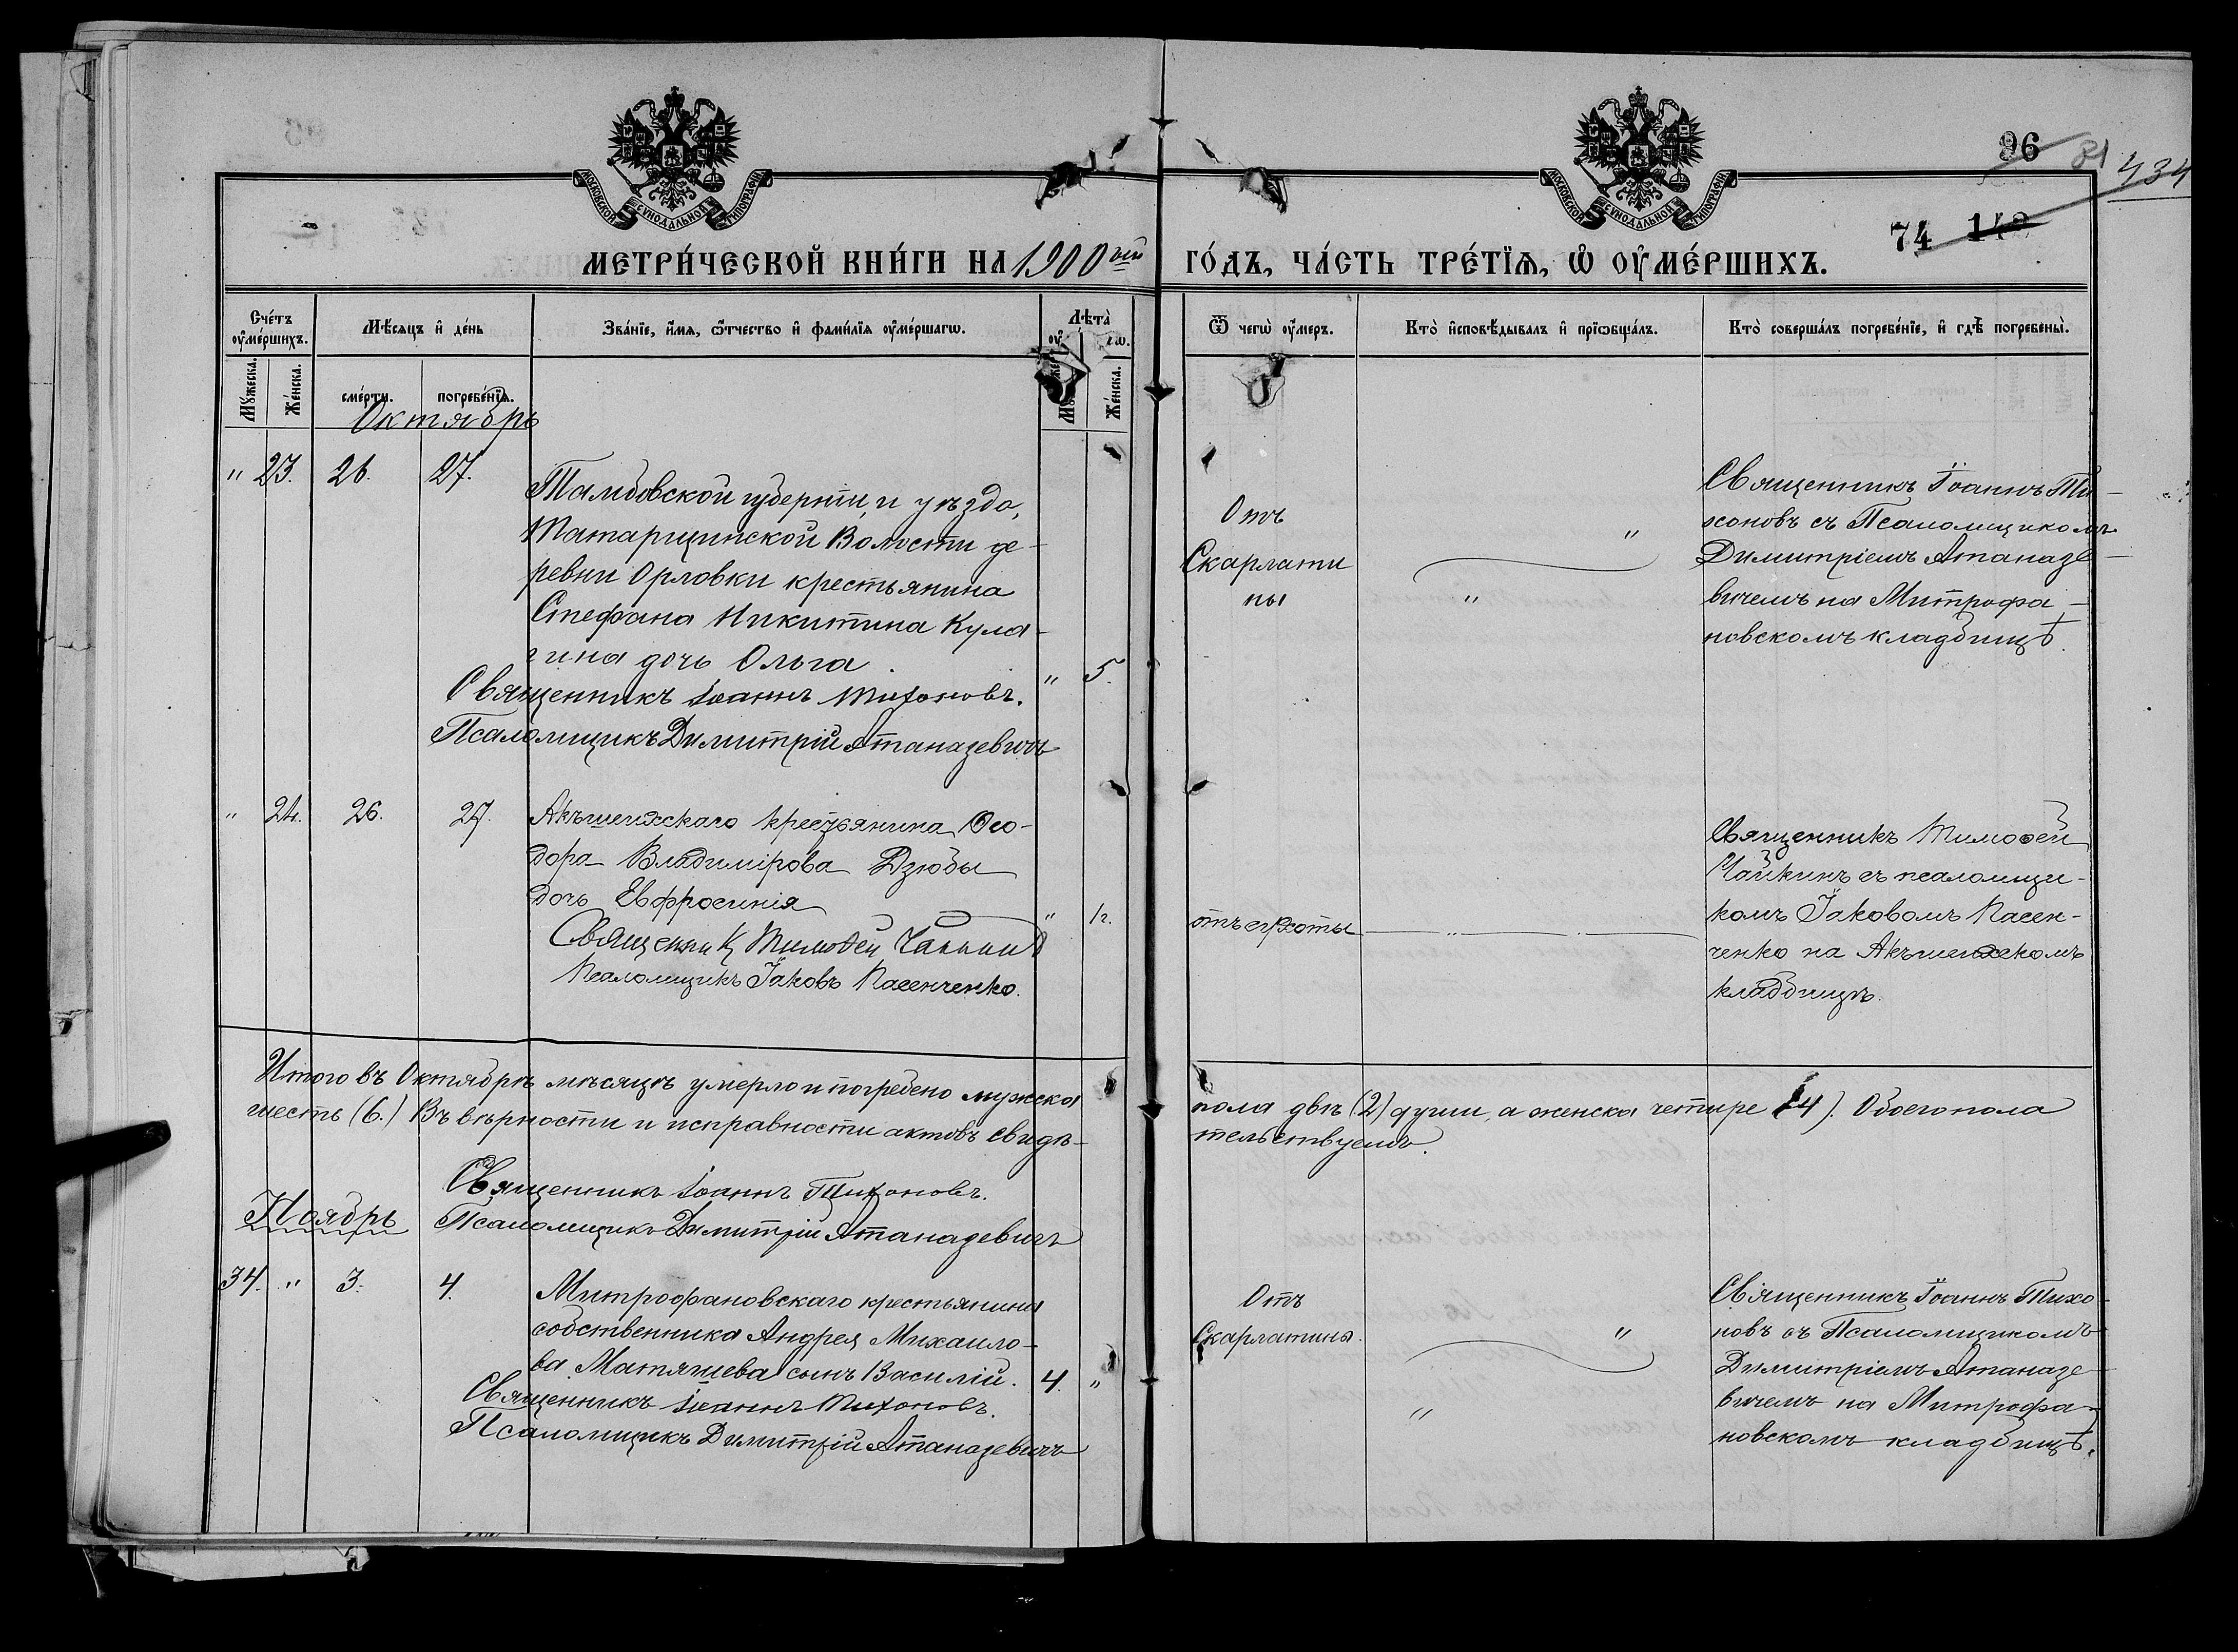 96 81 434
74 142
МОСКОВСКОЙ СУНОДАЛЬНОЙ ТИПОГРАФИИ
МОСКОВСКОЙ СУНОДАЛЬНОЙ ТИПОГРАФИИ
МЕТРИ́ЧЕСКОЙ КНИ́ГИ НА 1900 ый ГО́ДЪ, ЧА́СТЬ ТРЕ́ТЇѦ, Ѡ ОУ҆МЕ́РШИХЪ.
Сче́тъ оу҆ме́ршихъ.
Мѣ́сѧцъ и҆ де́нь
Зва́нїе, и҆́мѧ, ѻ҆́тчество и҆ фами́лїѧ оу҆ме́ршагѡ.
Лѣта̀
Ѿ чегѡ̀ оу҆́меръ.
Кто̀ и҆сповѣ́дывалъ и҆ прїѡбща́лъ.
Кто̀ соверша́лъ погребе́нїе, и҆ гдѣ̀ погребены̀.
Мꙋ́жеска. Же́нска. сме́рти. погребе́нїѧ. Же́нска.
Октябрь
" 23. 26. 27.
Тамбовской губерніи, и уѣзда,
Татарщинской Волости де-
ревни Орловки крестьянина
Стефана Никитина Кула-
гина дочь Ольга. " 5.
Священникъ Іоаннъ Тихоновъ.
Псаломщикъ Димитрій Атаназевичъ
Отъ
Скарлати
ны
" "
Священникъ Іоаннъ Ти-
хоновъ съ Псаломщикомъ
Димитріемъ Атаназе-
вичемъ на Митрофа-
новскомъ кладбищѣ.
" 24. 26. 27.
Акъшеихскаго крестьянина Ѳео-
дора Владимірова Дзюбы
дочь Евфросинія " 1г.
Священник Тимоѳей Чайкинъ
Псаломщикъ Іаковъ Пасенченко.
отъ сухоты "
Священникъ Тимоѳей
Чайкинъ съ псаломщи-
комъ Іаковомъ Пасен-
ченко на Акъшеихскомъ
кладбищѣ.
Итого въ Октябрѣ мѣсяцѣ умерло и погребено мужска пола двѣ (2) души, а женска четыре (4). Обоего пола
шесть (6.) Въ вѣрности и исправности актовъ свидѣ- тельствуемъ.
Священникъ Іоаннъ Тихоновъ.
Псаломщикъ Димитрій Атаназевичъ
Ноябрь
34. " 3. 4.
Митрофановскаго крестьянина
собственника Андрея Михаило-
ва Матяшева сынъ Василій. 4. "
Священникъ Іоаннъ Тихоновъ.
Псаломщикъ Димитрій Атаназевичъ
Отъ
Скарлатины.
" "
Священникъ Іоаннъ Тихо-
новъ съ Псаломщикомъ
Димитріемъ Атаназе-
вичемъ на Митрофа-
новскомъ кладбищѣ.